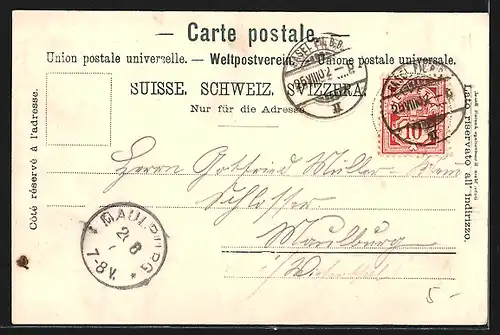 Carte postale.
Union postale universelle. — Weltpostverein. — Unione postale universale.
SUISSE. SCHWEIZ. SVIZZERA.
Nur für die Adresse.
Côté réservé à l'adresse.
Lato riservato all'indirizzo.
BASEL
25 VIII 02
BASEL
10
Herrn Gottfried Müller
Schlosser
Maulburg
MAULBURG
7-8 V.
5-